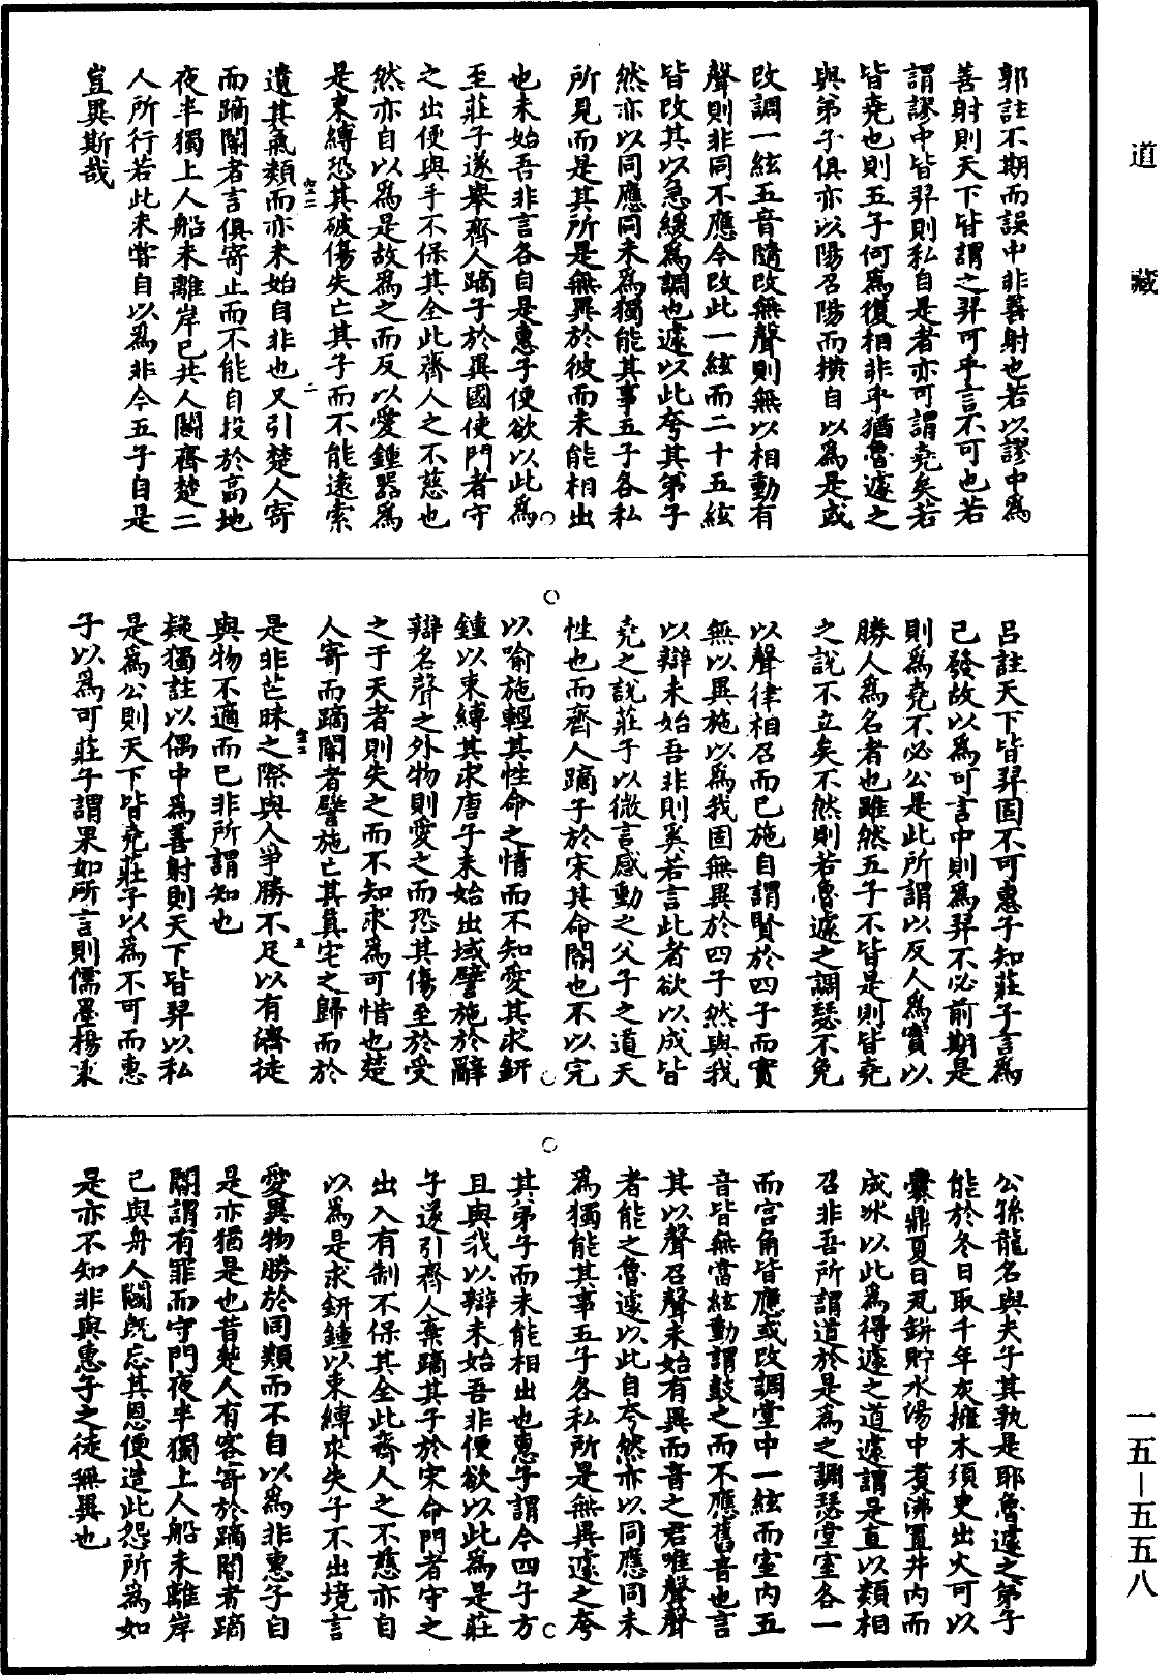 道藏
郭註不期而誤中非善射也若以謬中爲
善射則天下皆謂之羿可乎言不可也若
謂謬中皆羿則私自是者亦可謂堯矣若
皆堯也則五子何爲復相非乎猶魯遽之
與弟子俱亦以陽召陽而橫自以爲是或
改調一絃五音隨改無聲則無以相動有
聲則非同不應今改此一絃而二十五絃
皆改其以急緩爲調也遽以此夸其弟子
然亦以同應同未爲獨能其事五子各私
所見而是其所是無異於彼而未能相出
也未始吾非言各自是惠子便欲以此爲
至莊子遂舉齊人蹢子於異國使門者守
之出便與手不保其全此齊人之不慈也
然亦自以爲是故爲之而反以愛鍾器爲
是束縛恐其破傷失亡其子而不能遠索
遺其氣類而亦未始自非也又引楚人寄
而蹢閽者言俱寄止而不能自投於高地
夜半獨上人船未離岸已共人鬭齊楚二
人所行若此未嘗自以爲非今五子自是
豈異斯哉
呂註天下皆羿固不可惠子知莊子言爲
已發故以爲可言中則爲羿不必前期是
則爲堯不必公是此所謂以反人爲實以
勝人爲名者也雖然五子不皆是則皆堯
之說不立矣不然則若魯遽之調瑟不免
以聲律相召而已施自謂賢於四子而實
無以異施以爲我固無異於四子然與我
以辯未始吾非則奚若言此者欲以成皆
堯之說莊子以微言感動之父子之道天
性也而齊人蹢子於宋其命閽也不以完
以喻施輕其性命之情而不知愛其求鈃
鍾以束縛其求唐子未始出域譬施於辭
辯名聲之外物則愛之而恐其傷至於受
之于天者則失之而不知求爲可惜也楚
人寄而蹢閽者譬施亡其真宅之歸而於
是非芒昧之際與人爭勝不足以有濟徒
與物不適而已非所謂知也
疑獨註以偶中爲善射則天下皆羿以私
是爲公則天下皆堯莊子以爲不可而惠
子以爲可莊子謂果如所言則儒墨楊秉
公孫龍名與夫子其孰是耶魯遽之弟子
能於冬日取千年灰擁木須臾出火可以
爨鼎夏日瓦缾貯水湯中煮沸置井內而
成冰以此爲得遽之道遽謂是直以類相
召非吾所謂道於是爲之調瑟堂室各一
而宮角皆應或改調堂中一絃而室內五
音皆無當絃動謂鼓之而不應舊音也言
其以聲召聲未始有異而音之君唯聲聲
者能之魯遽以此自夸然亦以同應同未
爲獨能其事五子各私所是無異遽之夸
其弟子而未能相出也惠子謂今四子方
且與我以辯未始吾非便欲以此爲是莊
子遂引齊人棄蹢其子於宋命門者守之
出入有制不保其全此齊人之不慈亦自
以爲是求鈃鍾以束縛求失子不出境言
愛異物勝於同類而不自以爲非惠子自
是亦猶是也昔楚人有客寄於蹢閽者蹢
閽謂有罪而守門夜半獨上人船未離岸
已與舟人鬭旣忘其恩便造此怨所爲如
是亦不知非與惠子之徒無異也
一五—五五八